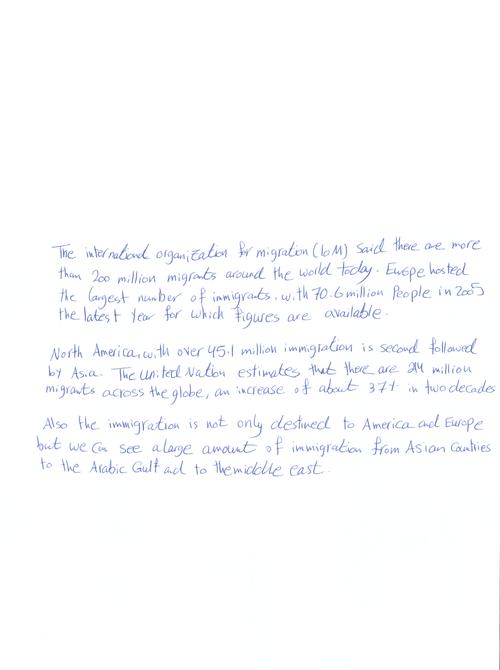 The international organization for migration (IoM) said there are more
than 200 million migrants around the world today. Europe hosted
the largest number of immigrants, with 70.6 million People in 2005
the latest Year for which figures are available.
North America, with over 45.1 million immigration is second followed
by Asia. The united Nation estimates that there are 214 million
migrants across the globe, an increase of about 37% in two decades
Also the immigration is not only destined to America and Europe
but we can see a large amount of immigration from Asian Countries
to the Arabic Gulf and to the middle east.